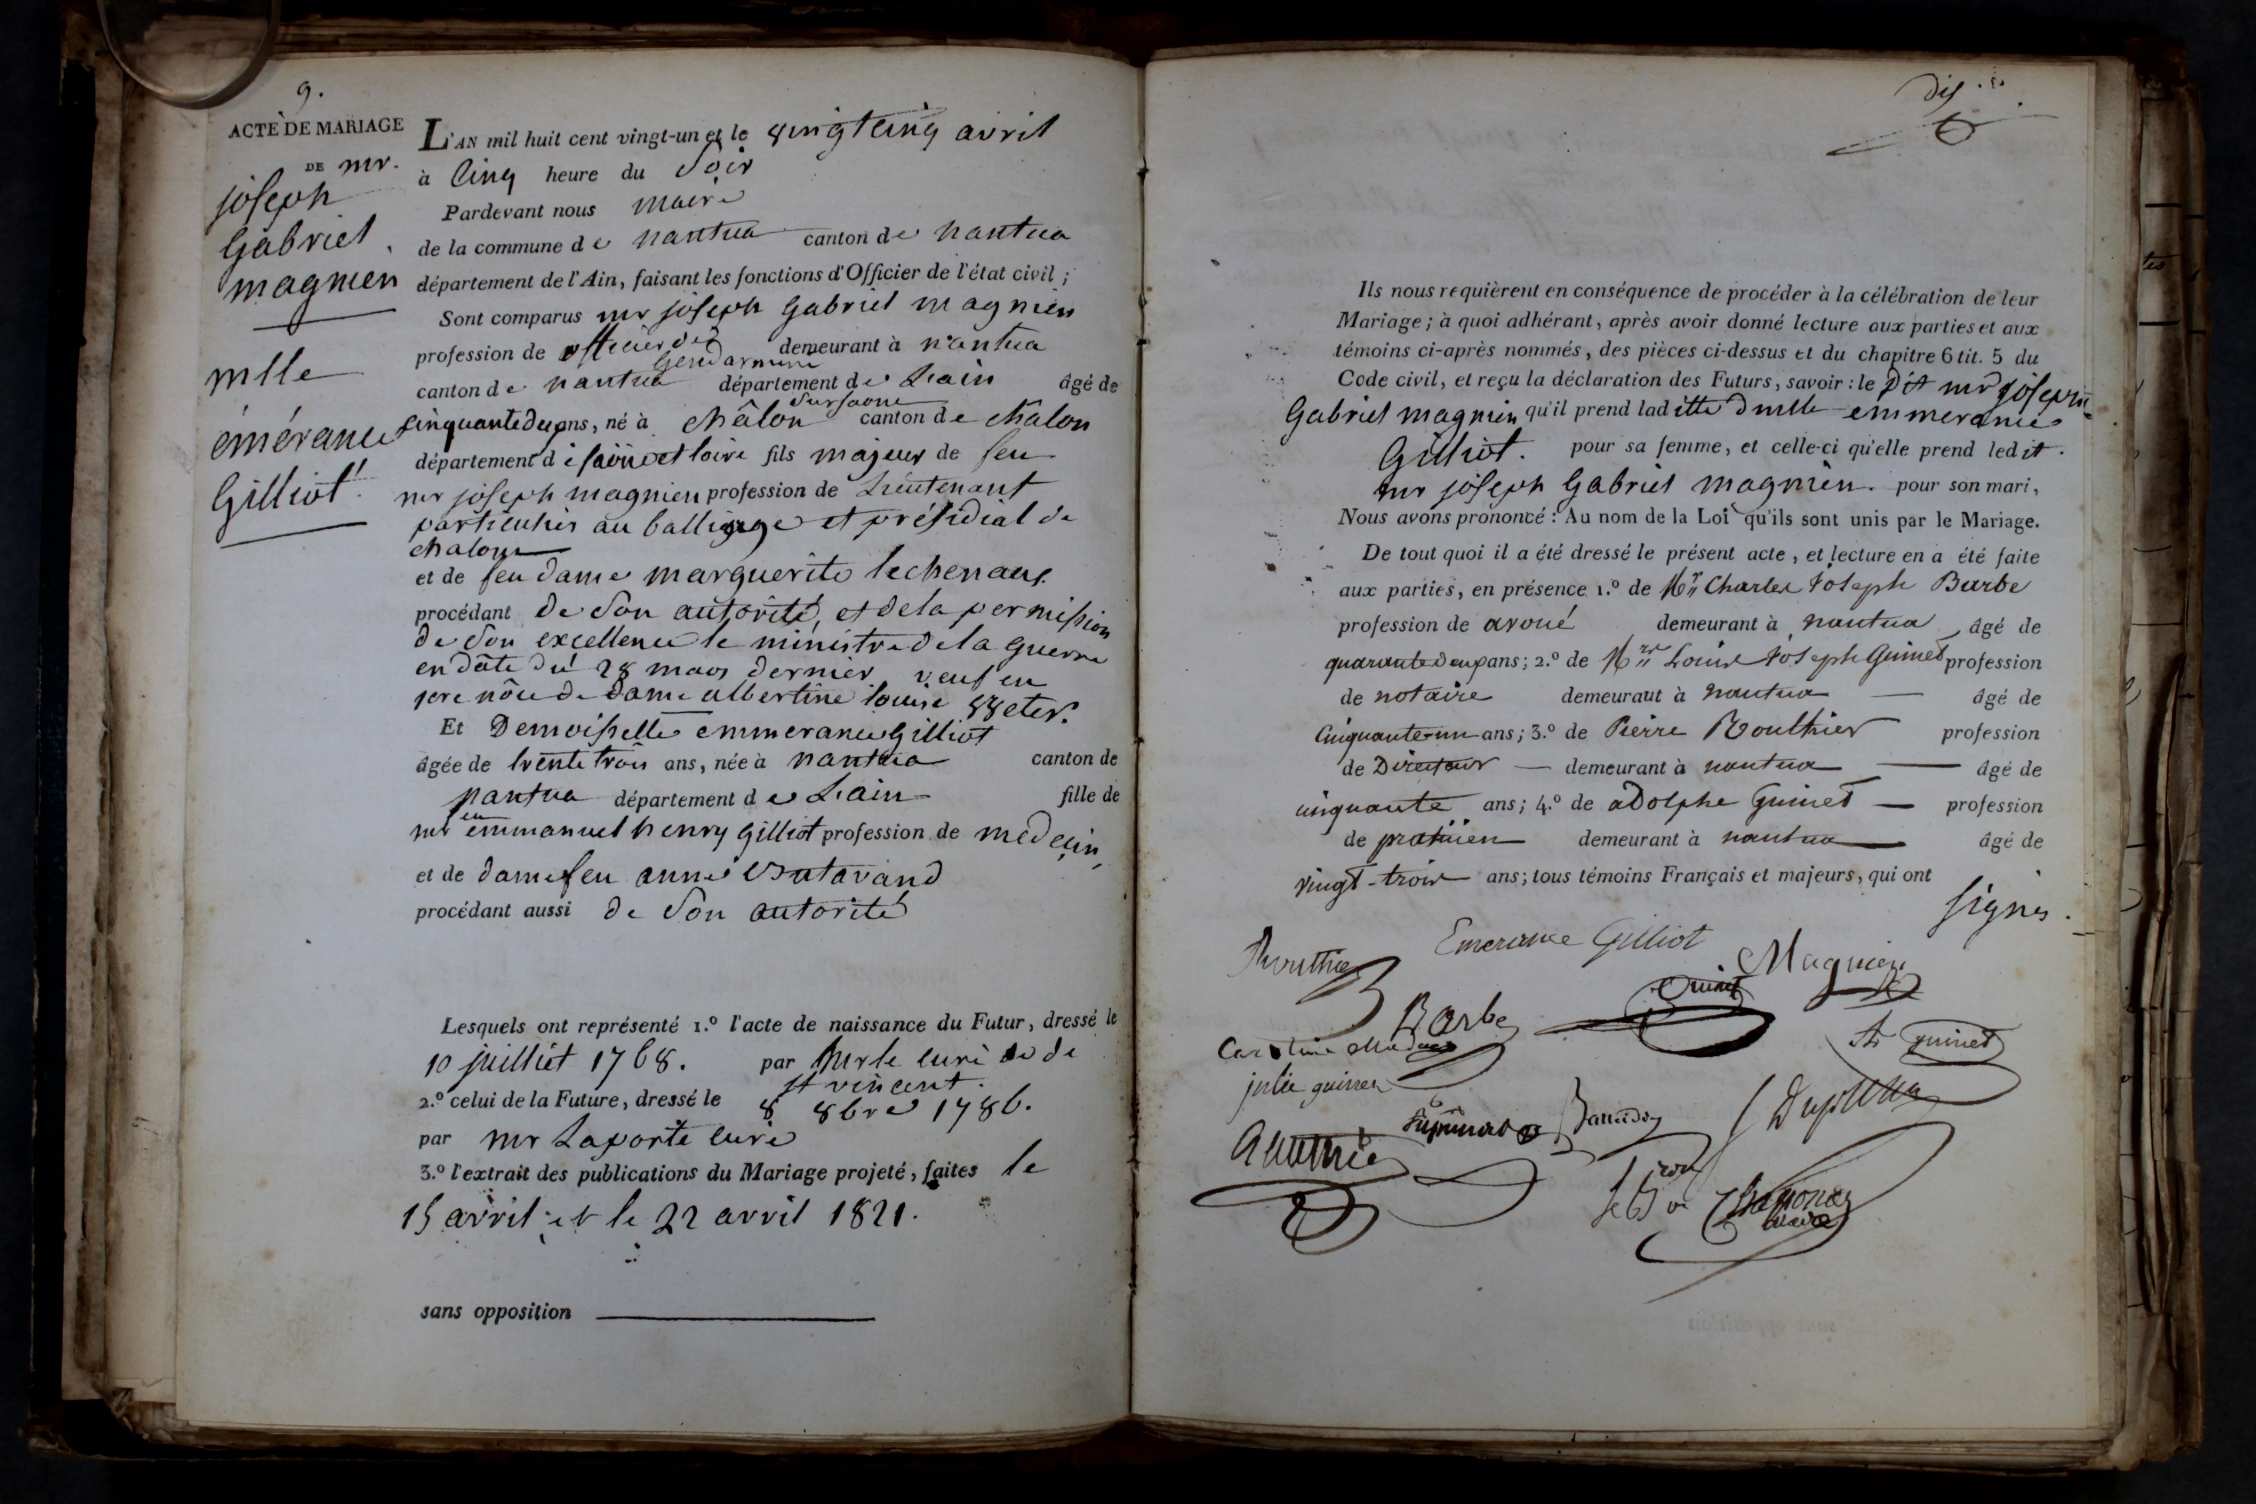 9.
ACTE DE MARIAGE
DE mr.
joseph
Gabriel
magnien
mlle
émérance
Gilliot
L'AN mil huit cent vingt-un et le vingt cinq avril
à Cinq heure du Soir
Pardevant nous maire
de la commune de nantua canton de nantua
département de l'Ain, faisant les fonctions d'Officier de l'état civil ;
Sont comparus mr joseph Gabriel magnien
profession de officier de Gendarmerie demeurant à nantua
canton de nantua département de L'ain âgé de
cinquante deux ans, né à châlon sur saone canton de châlon
département de saône et loire fils majeur de feu
mr joseph magnien profession de Lieutenant
particulier au balliage et présidial de
chalon
et de feu dame marguerite lechenaux
procédant de son autorité, et de la permission
de son excellence le ministre de la guerre
en dâte du 28 mars dernier veuf en
1ere nôce de dame albertine louise
Et Demoiselle emmerance Gilliot
âgée de trente trois ans, née à nantua canton de
nantua département de L'ain fille de
mr emmanuel henry Gilliot profession de médecin,
et de dame feu anne Butavand
procédant aussi de son autorité
Lesquels ont représenté 1.º l'acte de naissance du Futur, dressé le
10 juilliet 1768. par Mr le curé de
st vincent.
2.º celui de la Future, dressé le 8 8bre 1786.
par mr Laporte curé
3.º l'extrait des publications du Mariage projeté, faites le
15 avril et le 22 avril 1821.
sans opposition
dix
Ils nous requièrent en conséquence de procéder à la célébration de leur
Mariage ; à quoi adhérant, après avoir donné lecture aux parties et aux
témoins ci-après nommés, des pièces ci-dessus et du chapitre 6 tit. 5 du
Code civil, et reçu la déclaration des Futurs, savoir : le dit mr joseph
Gabriel magnien qu'il prend laditte dmlle emmerance
Gilliot. pour sa femme, et celle-ci qu'elle prend ledit.
mr joseph Gabriel magnien. pour son mari,
Nous avons prononcé : Au nom de la Loi qu'ils sont unis par le Mariage.
De tout quoi il a été dressé le présent acte, et lecture en a été faite
aux parties, en présence 1.º de Mr Charles Joseph Barbe
profession de avoué demeurant à nantua âgé de
quarante deux ans ; 2.º de Mr Louis Joseph Guinet profession
de notaire demeuraut à nantua âgé de
Cinquante-un ans ; 3.º de Pierre Routhier profession
de Directeur demeurant à nantua âgé de
cinquante ans ; 4.º de adolphe Guinet profession
de praticien demeurant à nantua âgé de
vingt-trois ans ; tous témoins Français et majeurs, qui ont
signés.
Routhier Emerance Gilliot Magnien
Barbe Guinet
Caroline
A guinet
julie